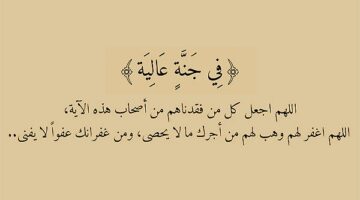 ﴿فِي جَنَّةٍ عَالِيَة﴾
اللهم اجعل كل من فقدناهم من أصحاب هذه الآية،
اللهم اغفر لهم وهب لهم من أجرك ما لا يحصى، ومن غفرانك عفواً لا يفنى..